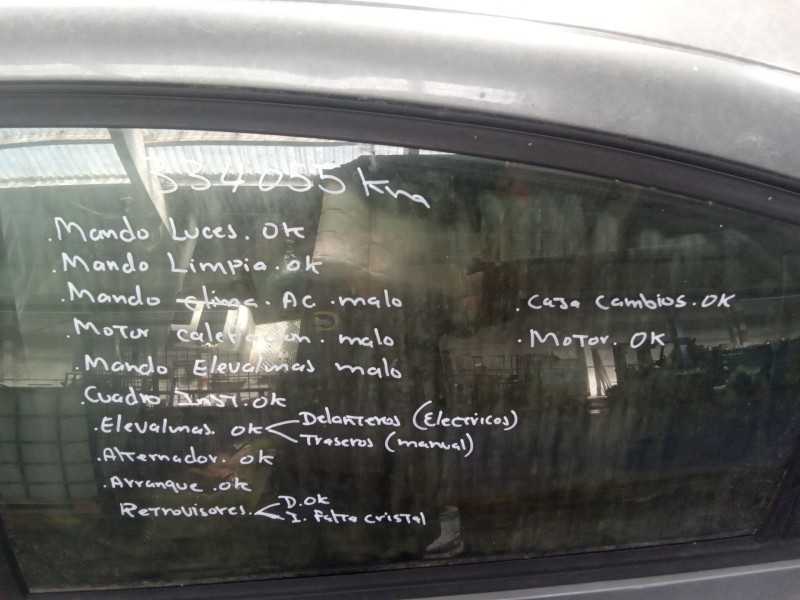 334055 km
.Mando Luces. OK
.Mando Limpia. OK
.Mando clima. AC. malo
.Motor calefacion. malo
.Mando Elevalunas malo
.Cuadro Inst. OK
.Elevalunas. OK Delanteros (Electricos)
Traseros (manual)
.Alternador. OK
.Arranque. OK
Retrovisores. D. OK
I. Falta cristal
.Caja Cambios. OK
.Motor. OK